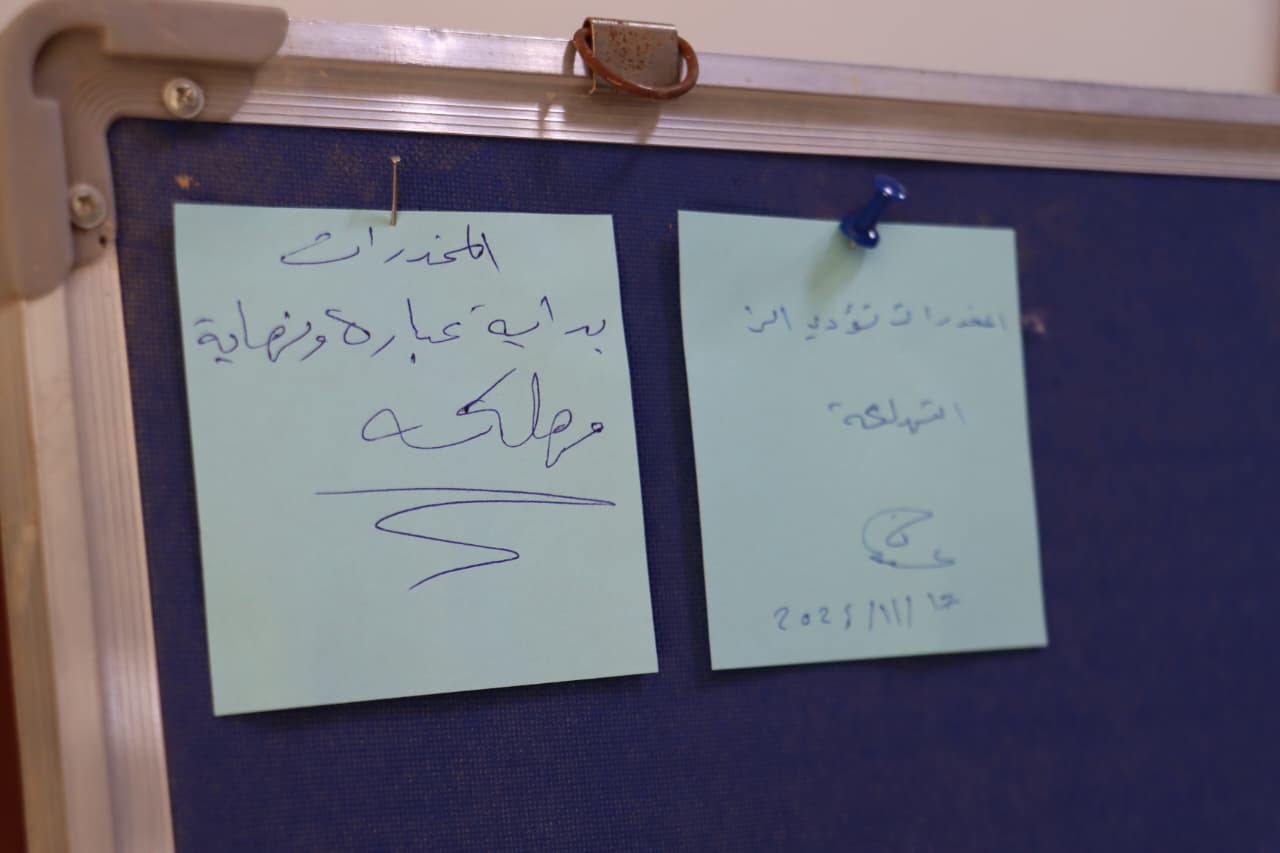 المخدرات
بداية عبارة ونهاية
مهلكه
المخدرات تؤدي الى
التهلكة